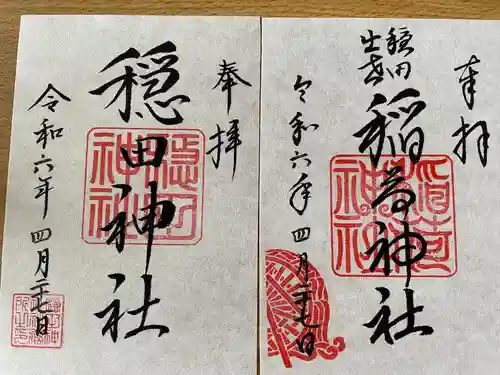 奉拝
穏田神社
穏田神社
令和六年四月二十七日
奉拝
穏田
出世
稲荷神社
稲荷神社
令和六年四月二十七日